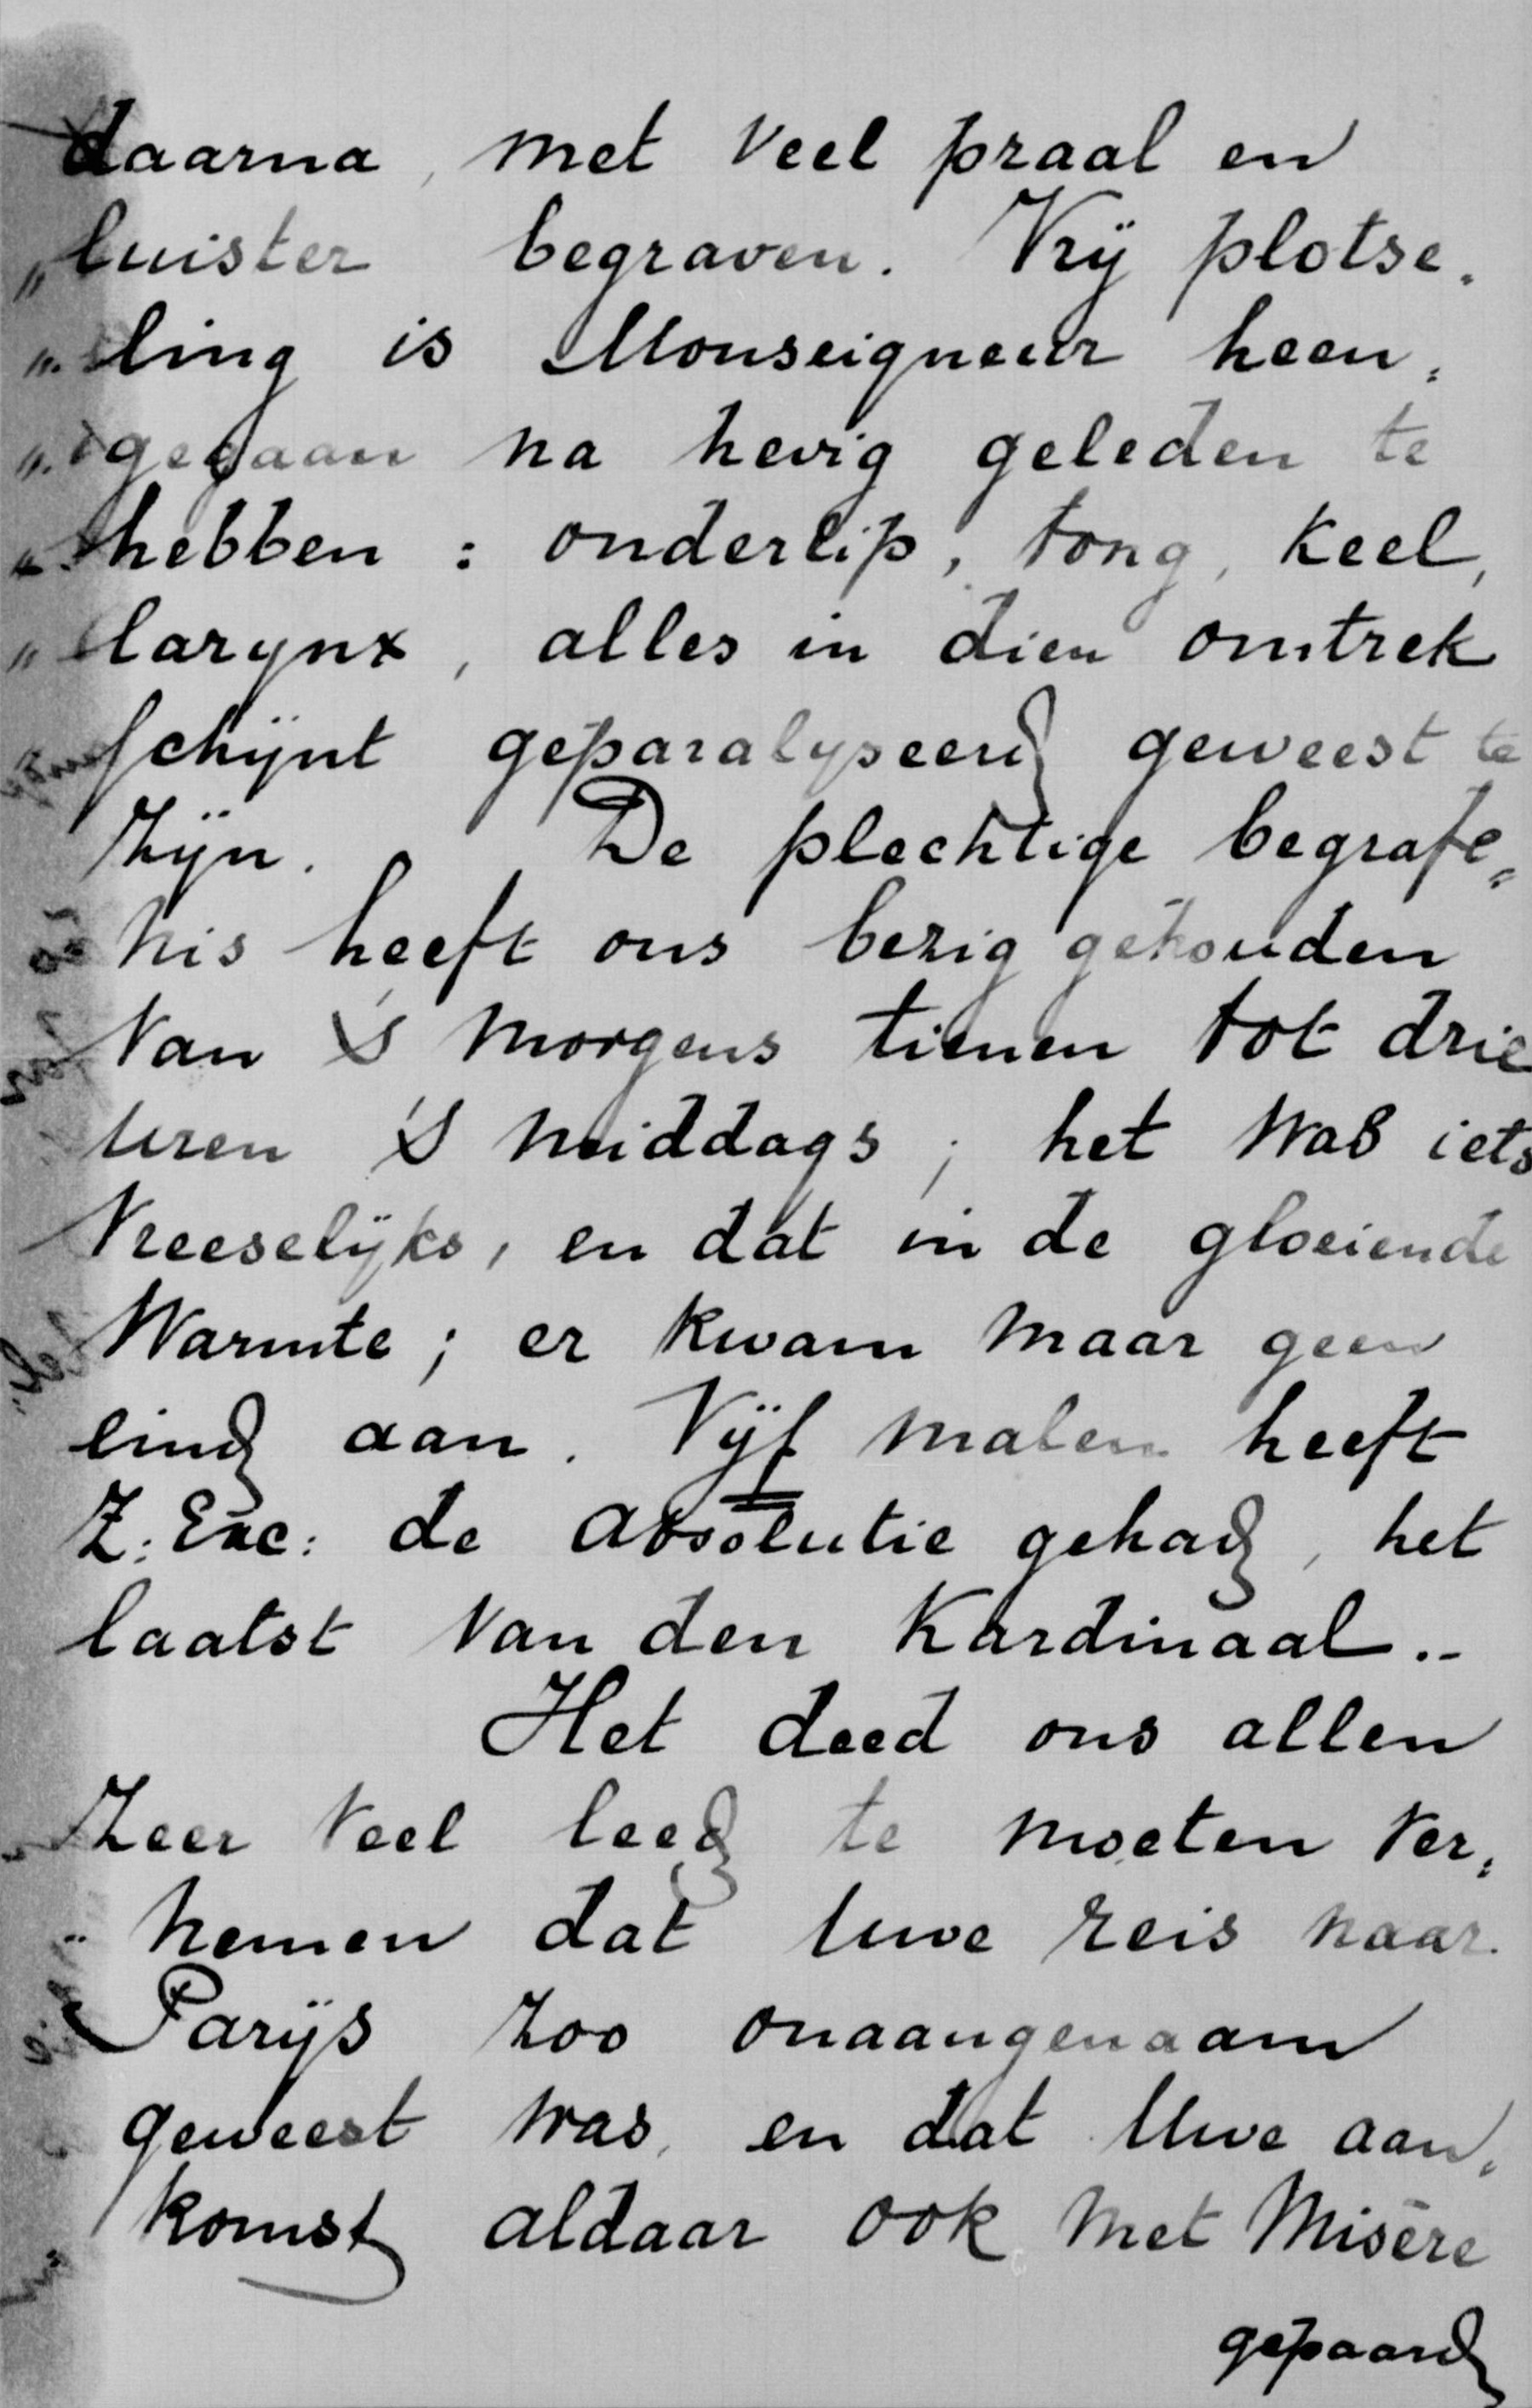 daarna, met veel praal en
„luister begraven. Vrij plotse„
„ling is Monseigneur heen„
„gegaan na hevig geleden te
hebben : onderlip, tong, keel,
larynx, alles in dien omtrek
schijnt geparalyseerd geweest te
zijn. De plechtige begrafe„
nis heeft ons bezig gehouden
van 's morgens tienen tot drie
uren 's middags ; het was iets
vreeselijks, en dat in de gloeiende
warmte ; er kwam maar geen
eind aan. Vijf malen heeft
Z. Exc: de absolutie gehad, het
laatst van den Kardinaal.-
Het deed ons allen
zeer veel leed te moeten ver„
nemen dat Uwe reis naar
Parijs zoo onaangenaam
geweest was, en dat Uwe aan„
komst aldaar ook met misère
gepaard